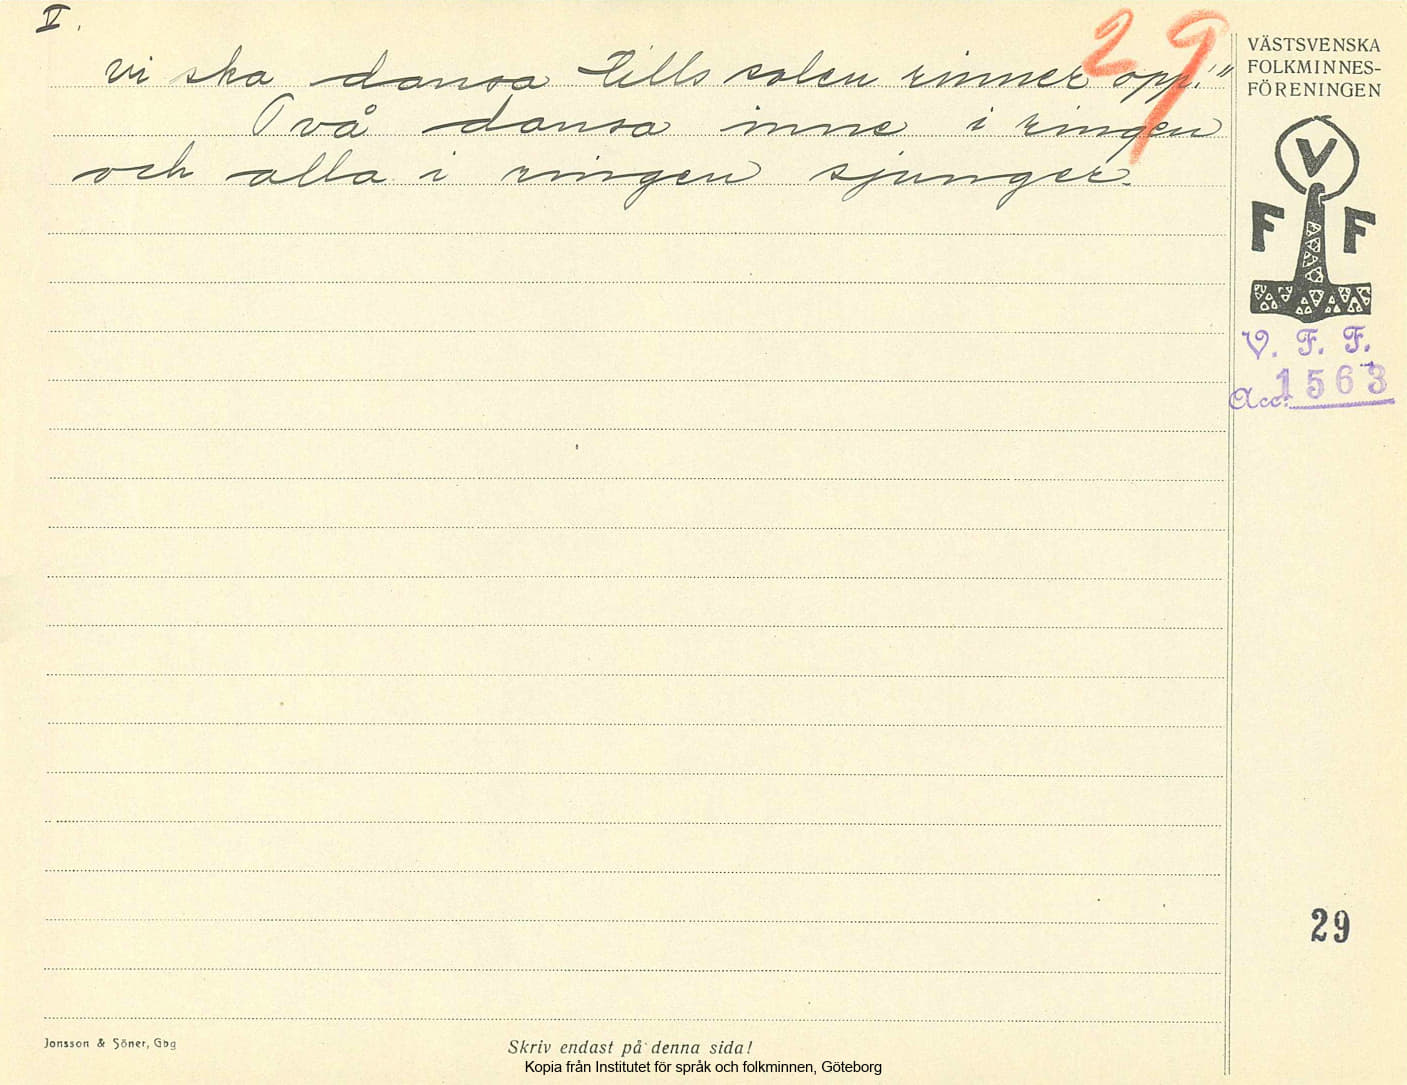 V.
29
vi ska dansa tills solen rinner opp!"
Två dansa inne i ringen
och alla i ringen sjunger.
VÄSTSVENSKA
FOLKMINNES-
FÖRENINGEN
V
F F
V. F. F.
Acc: 1563
29
Jonsson & Söner, Gbg
Skriv endast på denna sida!
Kopia från Institutet för språk och folkminnen, Göteborg